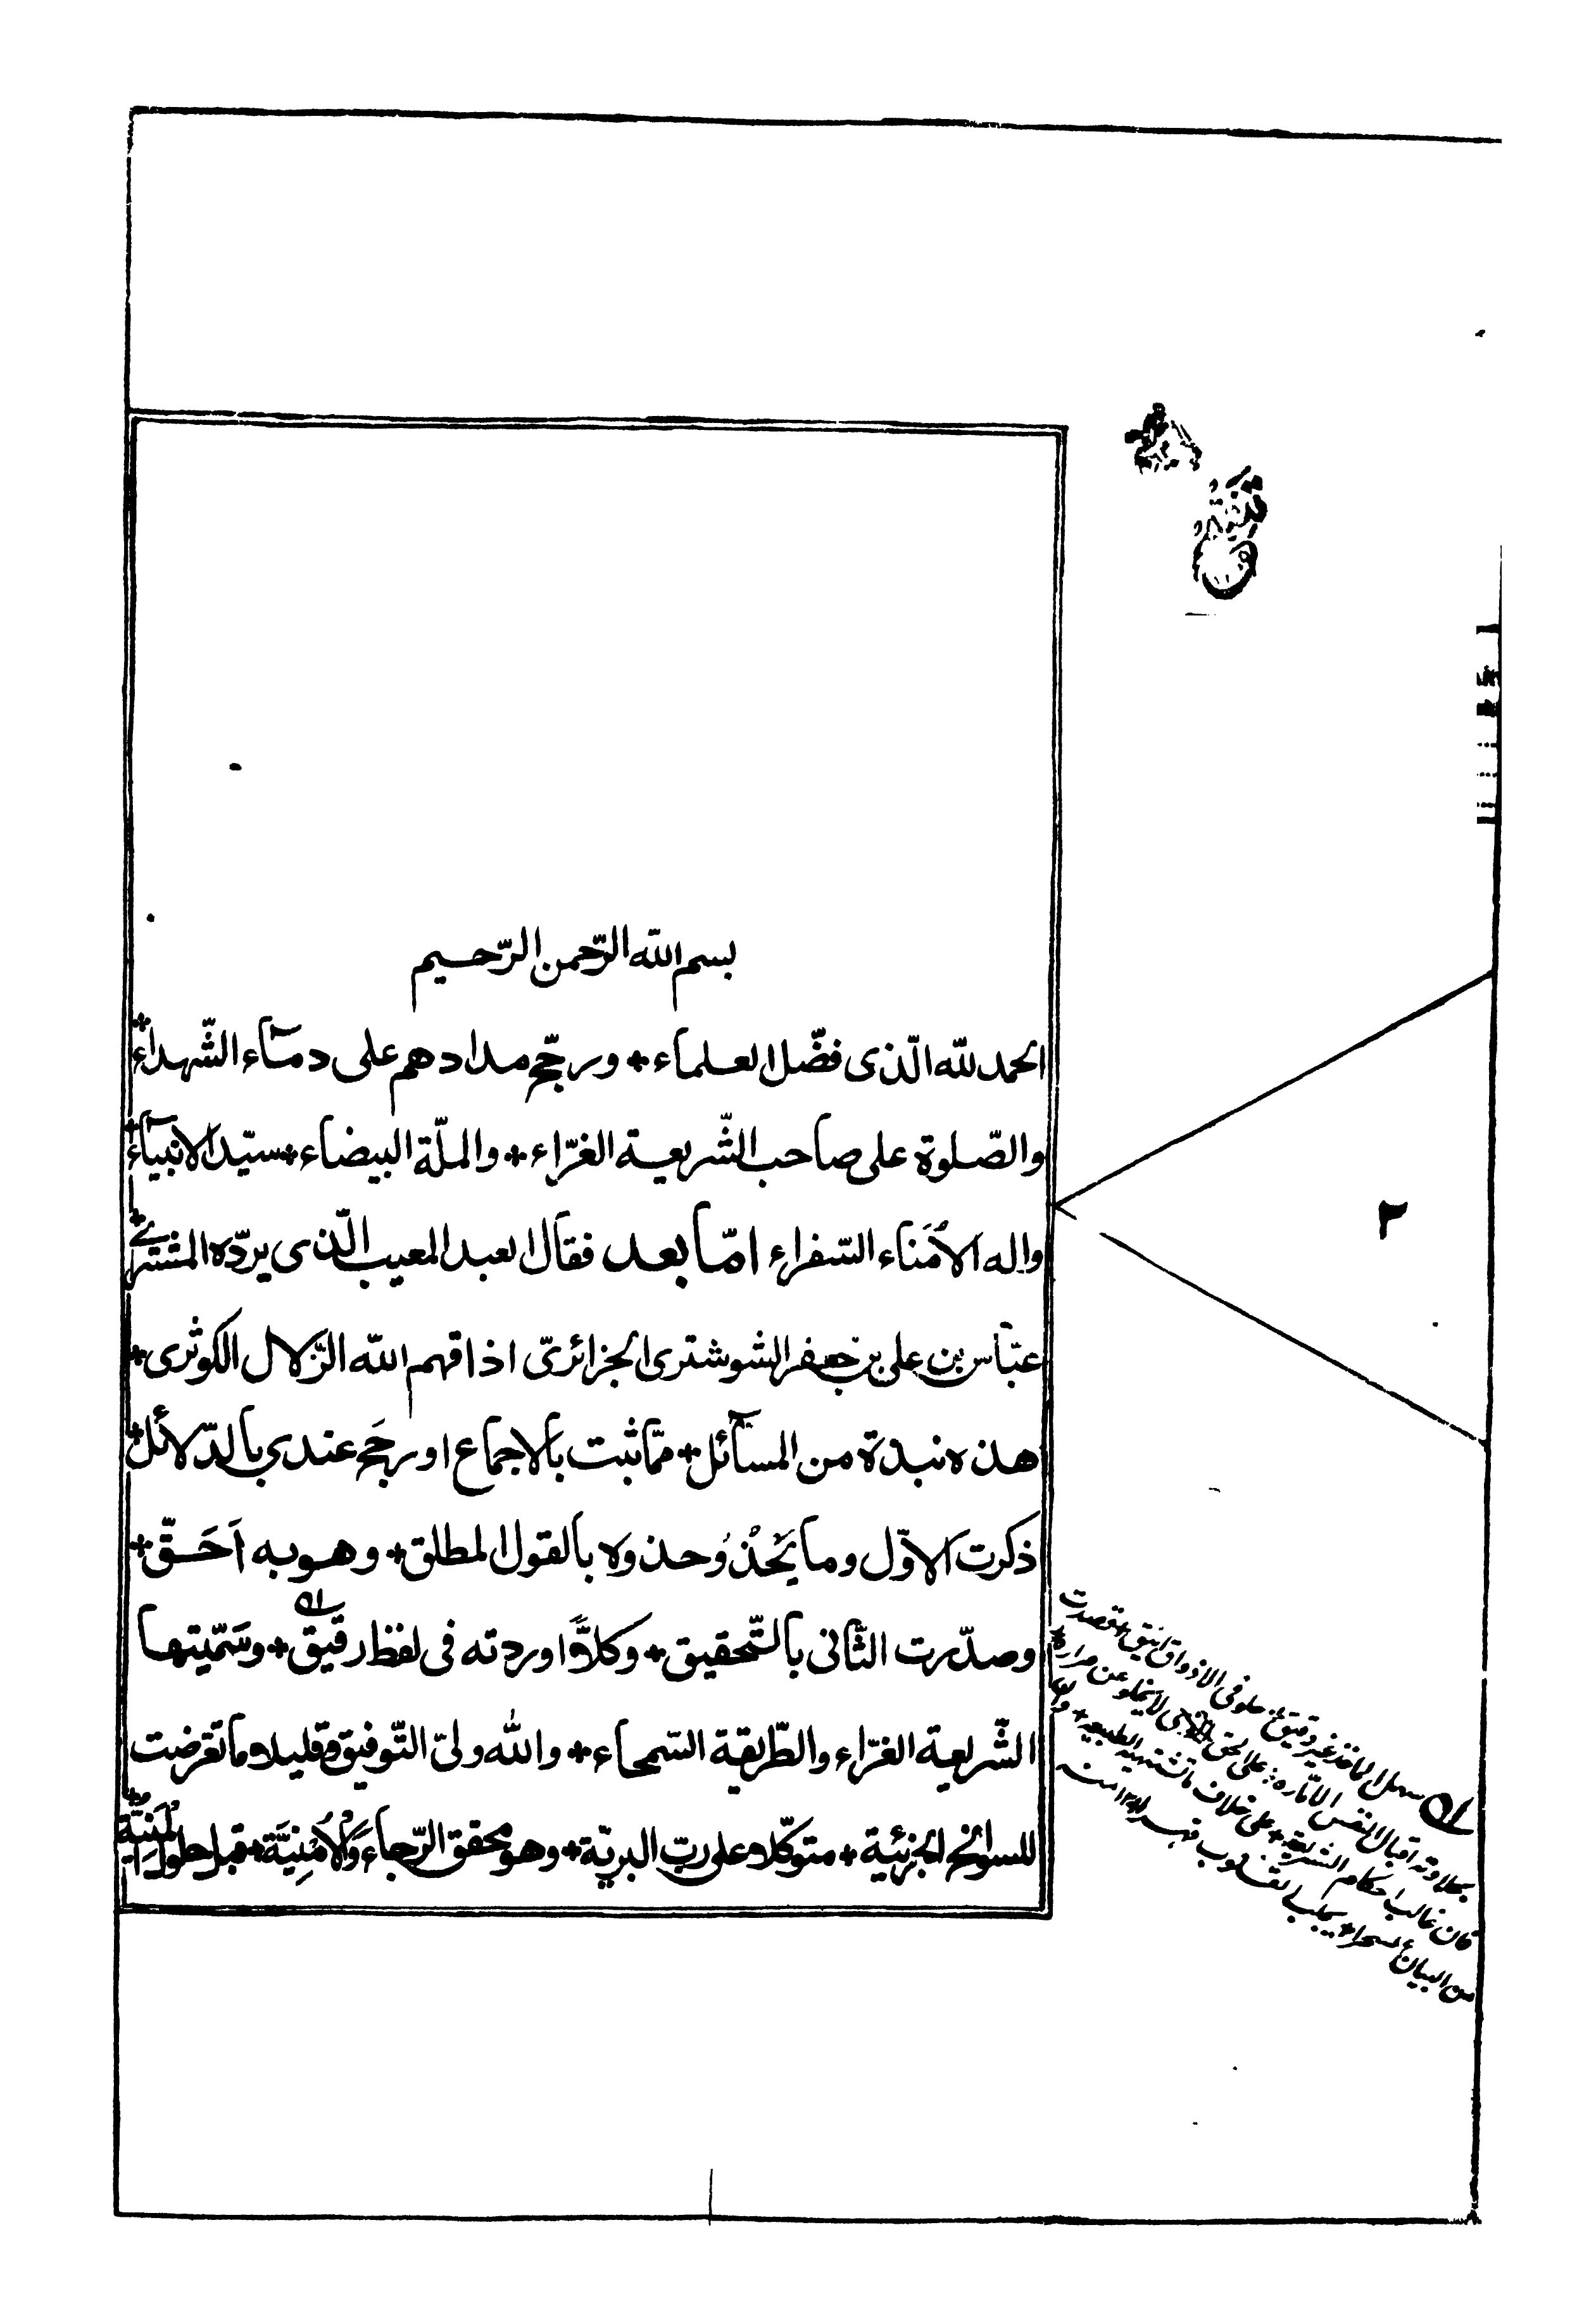 بسم الله الرّحمن الرّحيم
الحمد للّه الّذى فضّل العلماء + ورجّح مدادهم على دمآء الشّهداء +
والصّلوة على صاحب الشّريعة الغرّاء + والملّة البيضاء + سيّد الانبيآء +
واله الاُمَناء السّفراء امّا بعد فقال العبد المعيب الّذى يردّه المشترى +
عبّاس بن على بن جعفر الشوشترى الجزائرىّ اذاقهم الله الزّلال الكوثرى +
هذه نبذة من المسآئل + ممّا ثبت بالاجماع او رجَح عندي بالدّلائل +
ذكرت الاوّل وما يَحْذُ وُحذوه بالقول المطلق + وهو به اَحَقّ +
وصدّرت الثّانى بالتّحقيق + وكلاًّ اوردته فى لفظ رقيق + وسَمّيتها
الشّريعة الغرّاء والطّريقة السّمحاء + والله ولىّ التّوفيق وقليلا ما تعرضت
للسوانح الجزئية + متوكّلا على ربّ البريّة + وهو محقق الرّجاء وَالْاُمْنِيَّة + قبل حلول الْمَنِيَّة
٢
سهل الماخذ غير دقيق حلو فى الاذواق انيق + قصدت
بحلاوته اقبال النفس الامّاره على الحق لا يخلو عن مراره
فان غالب احكام الشريعة + على خلاف ما تشتهيه الطبيعه +
من البيان لسحرا + يجلب القلوب منه